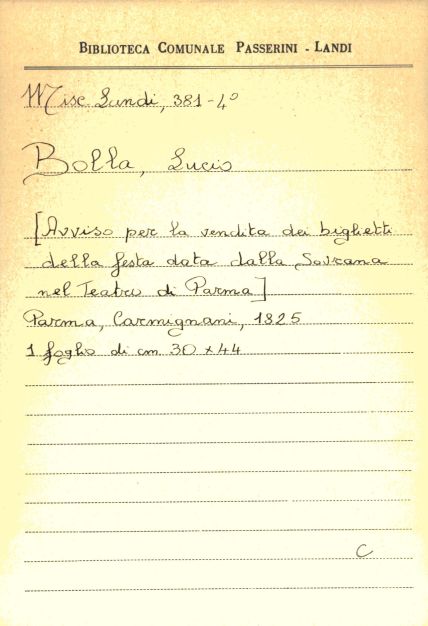 BIBLIOTECA COMUNALE PASSERINI - LANDI
Misc Landi, 381-4°
Bolla, Lucio
[Avviso per la vendita dei biglietti
della festa data dalla Sovrana
nel Teatro di Parma]
Parma, Carmignani, 1825
1 foglio di cm 30 x 44
C